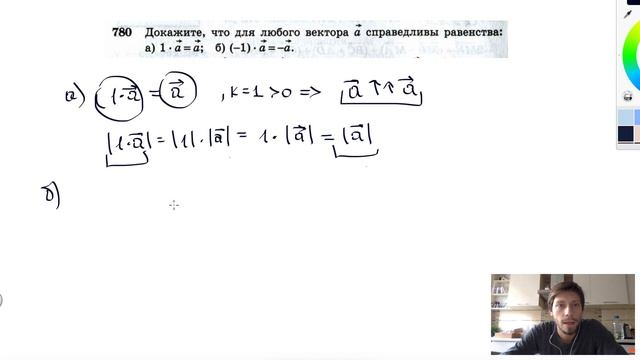 780 Докажите, что для любого вектора a⃗ справедливы равенства:
а) 1·a⃗=a⃗; б) (−1)·a⃗=−a⃗.
а) 1·a⃗ = a⃗ , k=1>0 => a⃗ ↑↑ a⃗
|1·a⃗| = |1|·|a⃗| = 1·|a⃗| = |a⃗|
б)